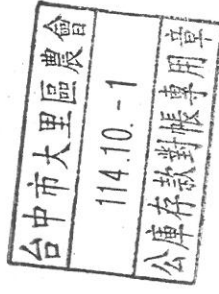 台中市大里區農會
114.10.-1
公庫存款對帳專用章